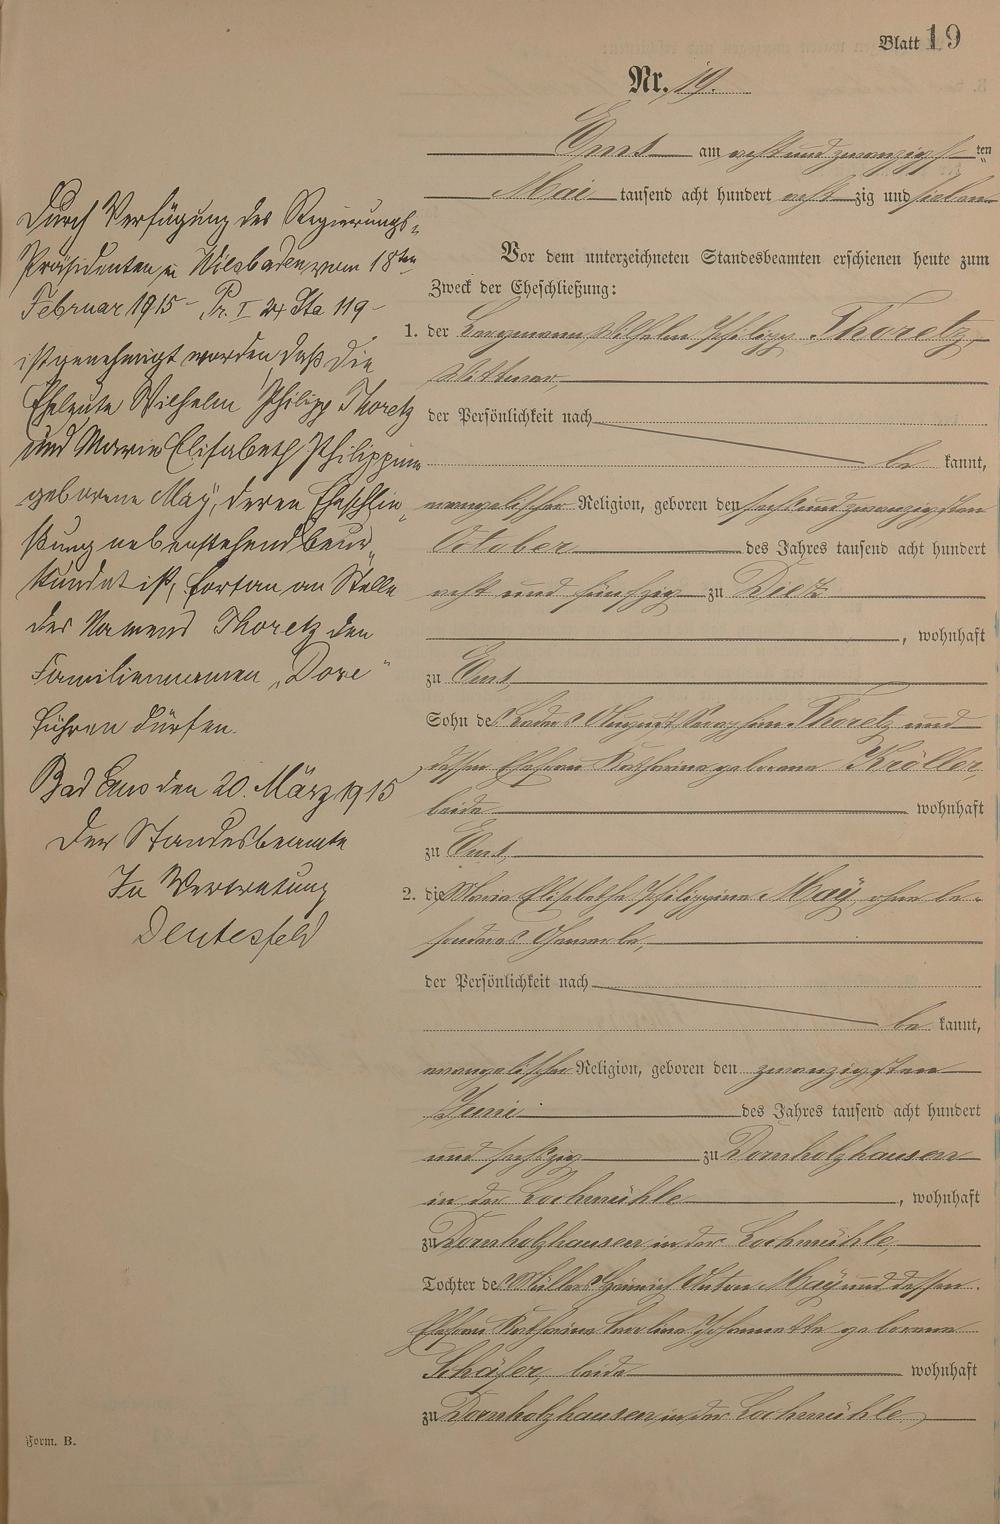 Blatt 19
Nr. 19.
Ems am acht und zwanzigsten
Mai tausend acht hundert achtzig und sieben
Vor dem unterzeichneten Standesbeamten erschienen heute zum
Zweck der Eheschließung:
1. der Bergmann Wilhelm Philipp Thoretz,
Wittwer,
der Persönlichkeit nach
be kannt,
evangelischer Religion, geboren den sechs und zwanzigsten
October des Jahres tausend acht hundert
acht und fünfzig zu Dietz
, wohnhaft
zu Ems,
Sohn des August Thoretz und
dessen Ehefrau Katharina geborene Kröller
beide wohnhaft
zu Ems,
2. die Maria Elisabetha Philippina Maÿ, ohne be-
sonderes Gewerbe,
der Persönlichkeit nach
be kannt,
evangelischer Religion, geboren den zwanzigsten
Juni des Jahres tausend acht hundert
und sechszig zu Dornholzhausen
in der Lochmühle, wohnhaft
zu Dornholzhausen in der Lochmühle,
Tochter des Müllers Heinrich Anton Maÿ und dessen
Ehefrau Katharina Carolina Johannetta geborene
Schäfer, beide wohnhaft
zu Dornholzhausen in der Lochmühle,
Durch Verfügung des Regierungs-
Präsidenten in Wiesbaden vom 18ten
Februar 1915 - Pr. I 24 Sta 119 -
ist genehmigt worden, daß die
Eheleute Wilhelm Philipp Thoretz
und Marie Elisabeth Philippine
geborene Maÿ, deren Eheschlie-
ßung nebenstehend beur-
kundet ist, fortan an Stelle
des Namens Thoretz den
Familiennamen „Dore"
führen dürfen.
Bad Ems den 20. März 1915
Der Standesbeamte
In Vertretung
Deutesfeld
Form. B.